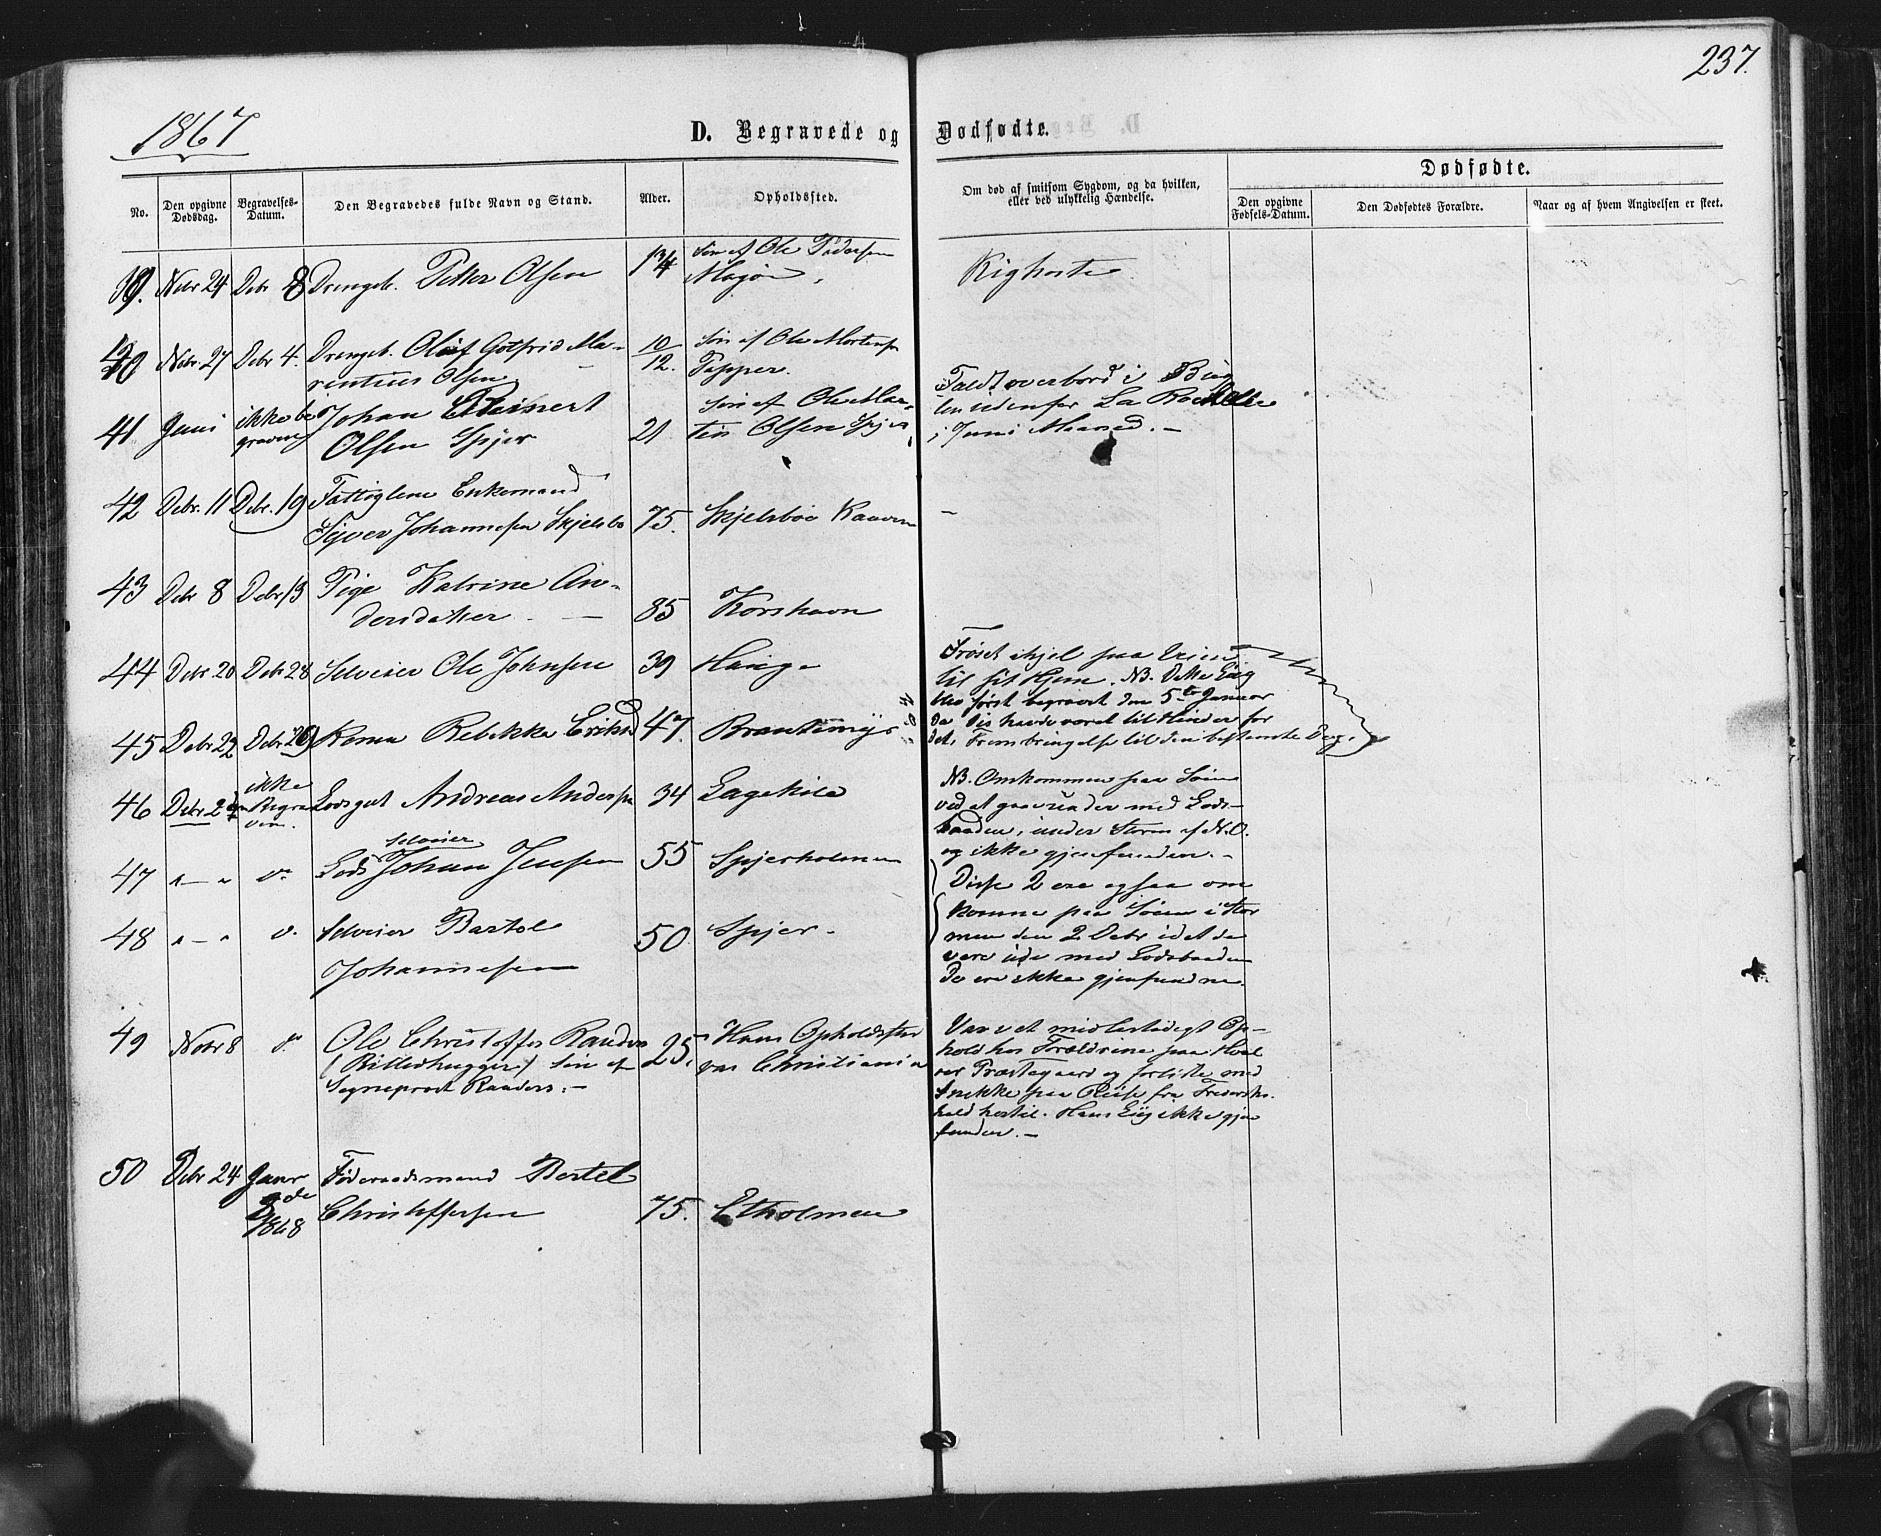 237.
1867
D. Begravede og Dødfødte.
No.
Den opgivne Dødsdag.
Begravelses-Datum.
Den Begravedes fulde Navn og Stand.
Alder.
Opholdssted.
Om død af smitsom Sygdom, og da hvilken, eller ved ulykkelig Hændelse.
Dødfødte.
Den opgivne Fødsels-Datum.
Den Dødfødtes Forældre.
Naar og af hvem Angivelsen er skeet.
39. Nobr 24 Debr 8 Drengeb. Petter Olsen 1 3/4 Søn af Ole Pedersen
Magøn. Kighoste
40 Nobr. 27 Debr 4. Drengeb. Olaf Gotfrid Ma-
rentius Olsen 10/12. Søn af Ole Mortensen
Tapper.
41 Juni ikke be
graven Johan Edvinert
Olsen Spjer 21 Søn af Ole Mar-
tin Olsen Spjer
Faldt overbord i
udenfor La Rochelle
i Juni Maaned. —
42 Debr. 11 Debr. 19 Fattiglem Enkemand
Sjver Johannesen Skjelsbo 75. Skjelsboe —
43 Debr 8 Debr 13 Pige Katrine An-
dersdatter — 85 Korshavn
44 Debr 20 Debr 28 Selveier Ole Johnsen 39 Hauge
Frøset ihjel paa Veien
til sit Hjem. NB. Dette Liig
blev først begravet den 5te Januar
da Iis havde været til Hinder for
det, Frembringelse til den bestemte Dag.
45 Debr 22 Debr 29 Kone Rebekke Eriksd 47. Brantemyr
46 Debr 2den ikke
Begra
ven. Lodsgut Andreas Andersen 34 Lagekile
NB. Omkommen paa Søen
ved at gaae under med Lods-
baaden, under Storm af N.O.
og ikke gjenfunden. —
47 " — " do Selveier
Lods Johan Jensen 55 Spjerholmen
Disse 2 ere ogsaa om
komne paa Søen i Stor
men den 2 Debr idet de
vare ude med Lodsbaaden
De ere ikke gjenfundne.
48 " — " do Selveier Bartol
Johannesen 50 Spjer.
49 Nobr 8 do Ole Christoffer Raader
(Billedhugger) Søn af
Sogneprest Raaders. — 25. Hans Opholdssted
var Christiania
Var ved et midlertidigt Op-
hold hos Forældrene paa Hval
øer Præstegaard og forliste med
Snekke paa Reise fra Fredriks-
hald hertil. Hans Liig ikke gjen
funden. —
50 Debr 24 Janr
2de
1868 Føderaadsmand Bertel
Christoffersen 75. Etholmen